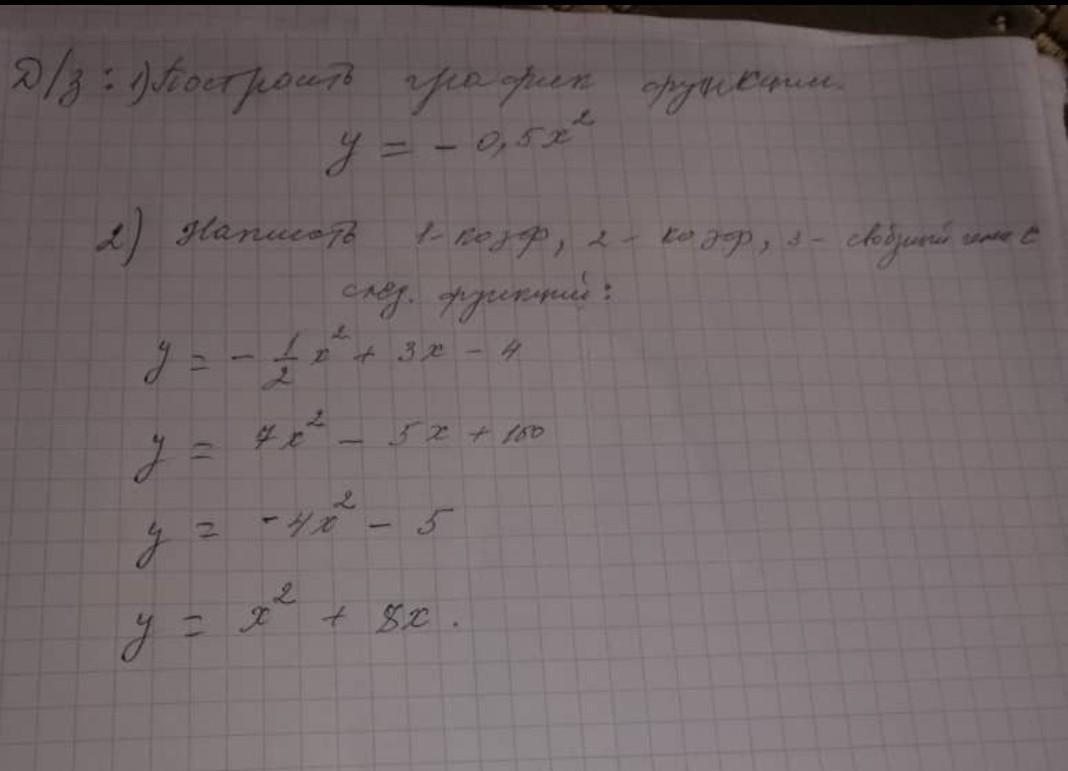 Д/з: 1) Построить график функции.
y = - 0,5x²
2) Написать 1-коэф, 2 - коэф, 3 - свободный член с
след. функций:
y = - 1/2 x² + 3x - 4
y = 7x² - 5x + 100
y = -4x² - 5
y = x² + 8x.